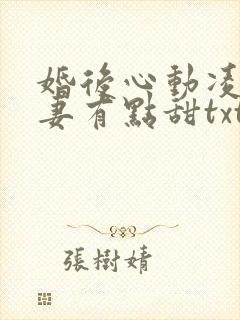 婚後心動凌
妻有點甜txt
張樹婧